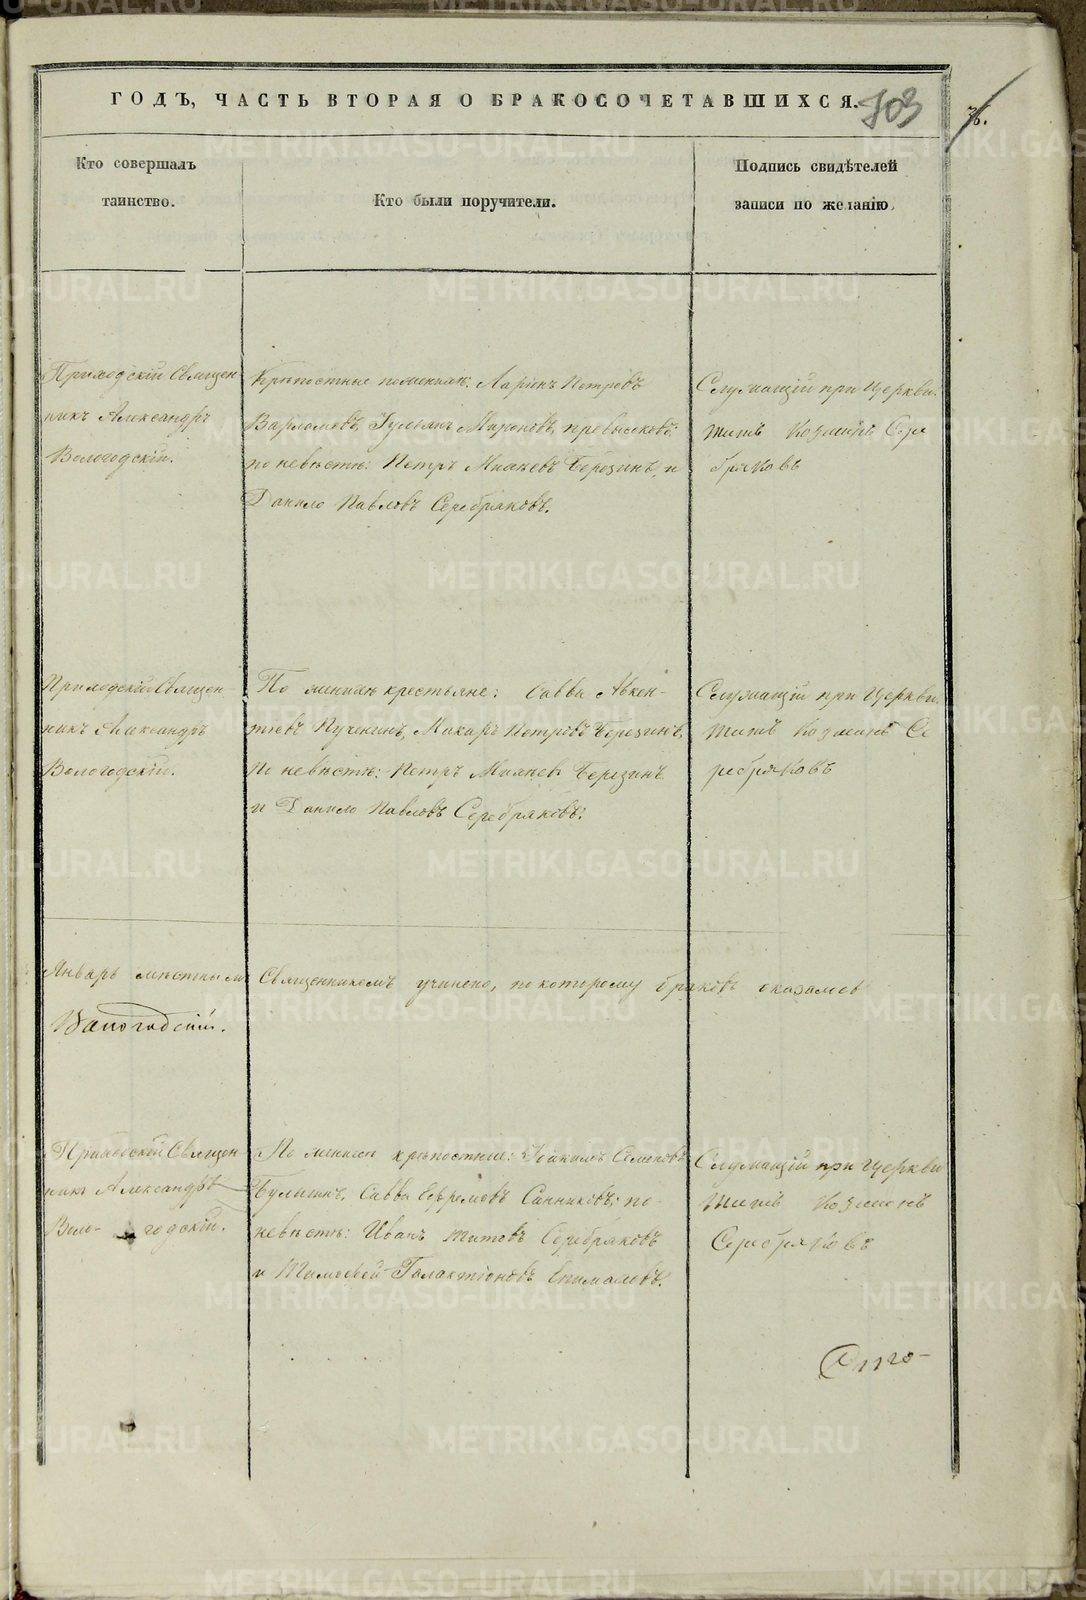 ГОДЪ, ЧАСТЬ ВТОРАЯ О БРАКОСОЧЕТАВШИХСЯ.
703
Кто совершалъ
таинство.
Кто были поручители.
Подпись свидѣтелей
записи по желанію.
Приходскій Священ
никъ Александръ
Вологодскій.
Крѣпостные по женихѣ: Ларіонъ Петровъ
Варламовъ, Мироновъ
по невѣстѣ: Петръ Березинъ, и
Данило Павловъ Серебряковъ.
Служащій при Церкви
Титъ Козминъ Сере
бряковъ
Приходскій Священ-
никъ Александръ
Вологодскій.
По женихѣ крестьяне: Савва Авкен-
тіевъ Пученинъ, Макаръ Петровъ Березинъ.
По невѣстѣ: Петръ Березинъ
и Данило Павловъ Серебряковъ.
Служащій при Церкви
Титъ Козминъ Се
ребряковъ
Январь мѣстнымъ Священникомъ учинено, по которому браковъ оказалось
Вологодскій.
Приходскій Священ
никъ Александръ
Воло- годскій.
По женихѣ крѣпостные: Іоакимъ Семеновъ
Савва Ефремовъ Санниковъ; по
невѣстѣ: Иванъ Титовъ Серебряковъ
и Тимофей Галактіоновъ
Служащій при Церкви
Титъ Козминъ
Серебряковъ
METRIKI.GASO-URAL.RU